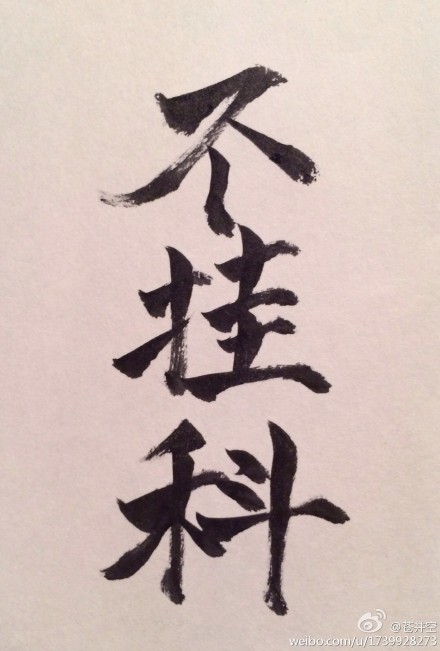 不挂科
@苍井空
weibo.com/u/1739928273